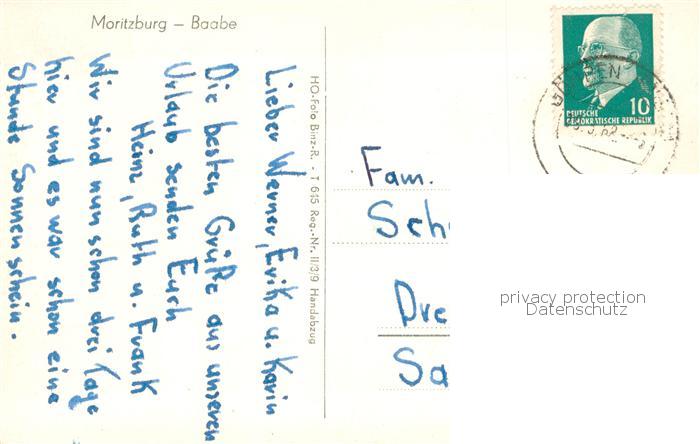 Moritzburg – Baabe
Lieber Werner, Erika u. Karin
Die besten Grüße aus unseren
Urlaub senden Euch
Heinz, Ruth u. Frank
Wir sind nun schon drei Tage
hier und es war schon eine
Stunde Sonnenschein.
HO-Foto Binz-R. - T 615 Reg.-Nr. II/3/9 Handabzug
10
DEUTSCHE
DEMOKRATISCHE REPUBLIK
Fam.
Sch
Dre
Sa
privacy protection
Datenschutz